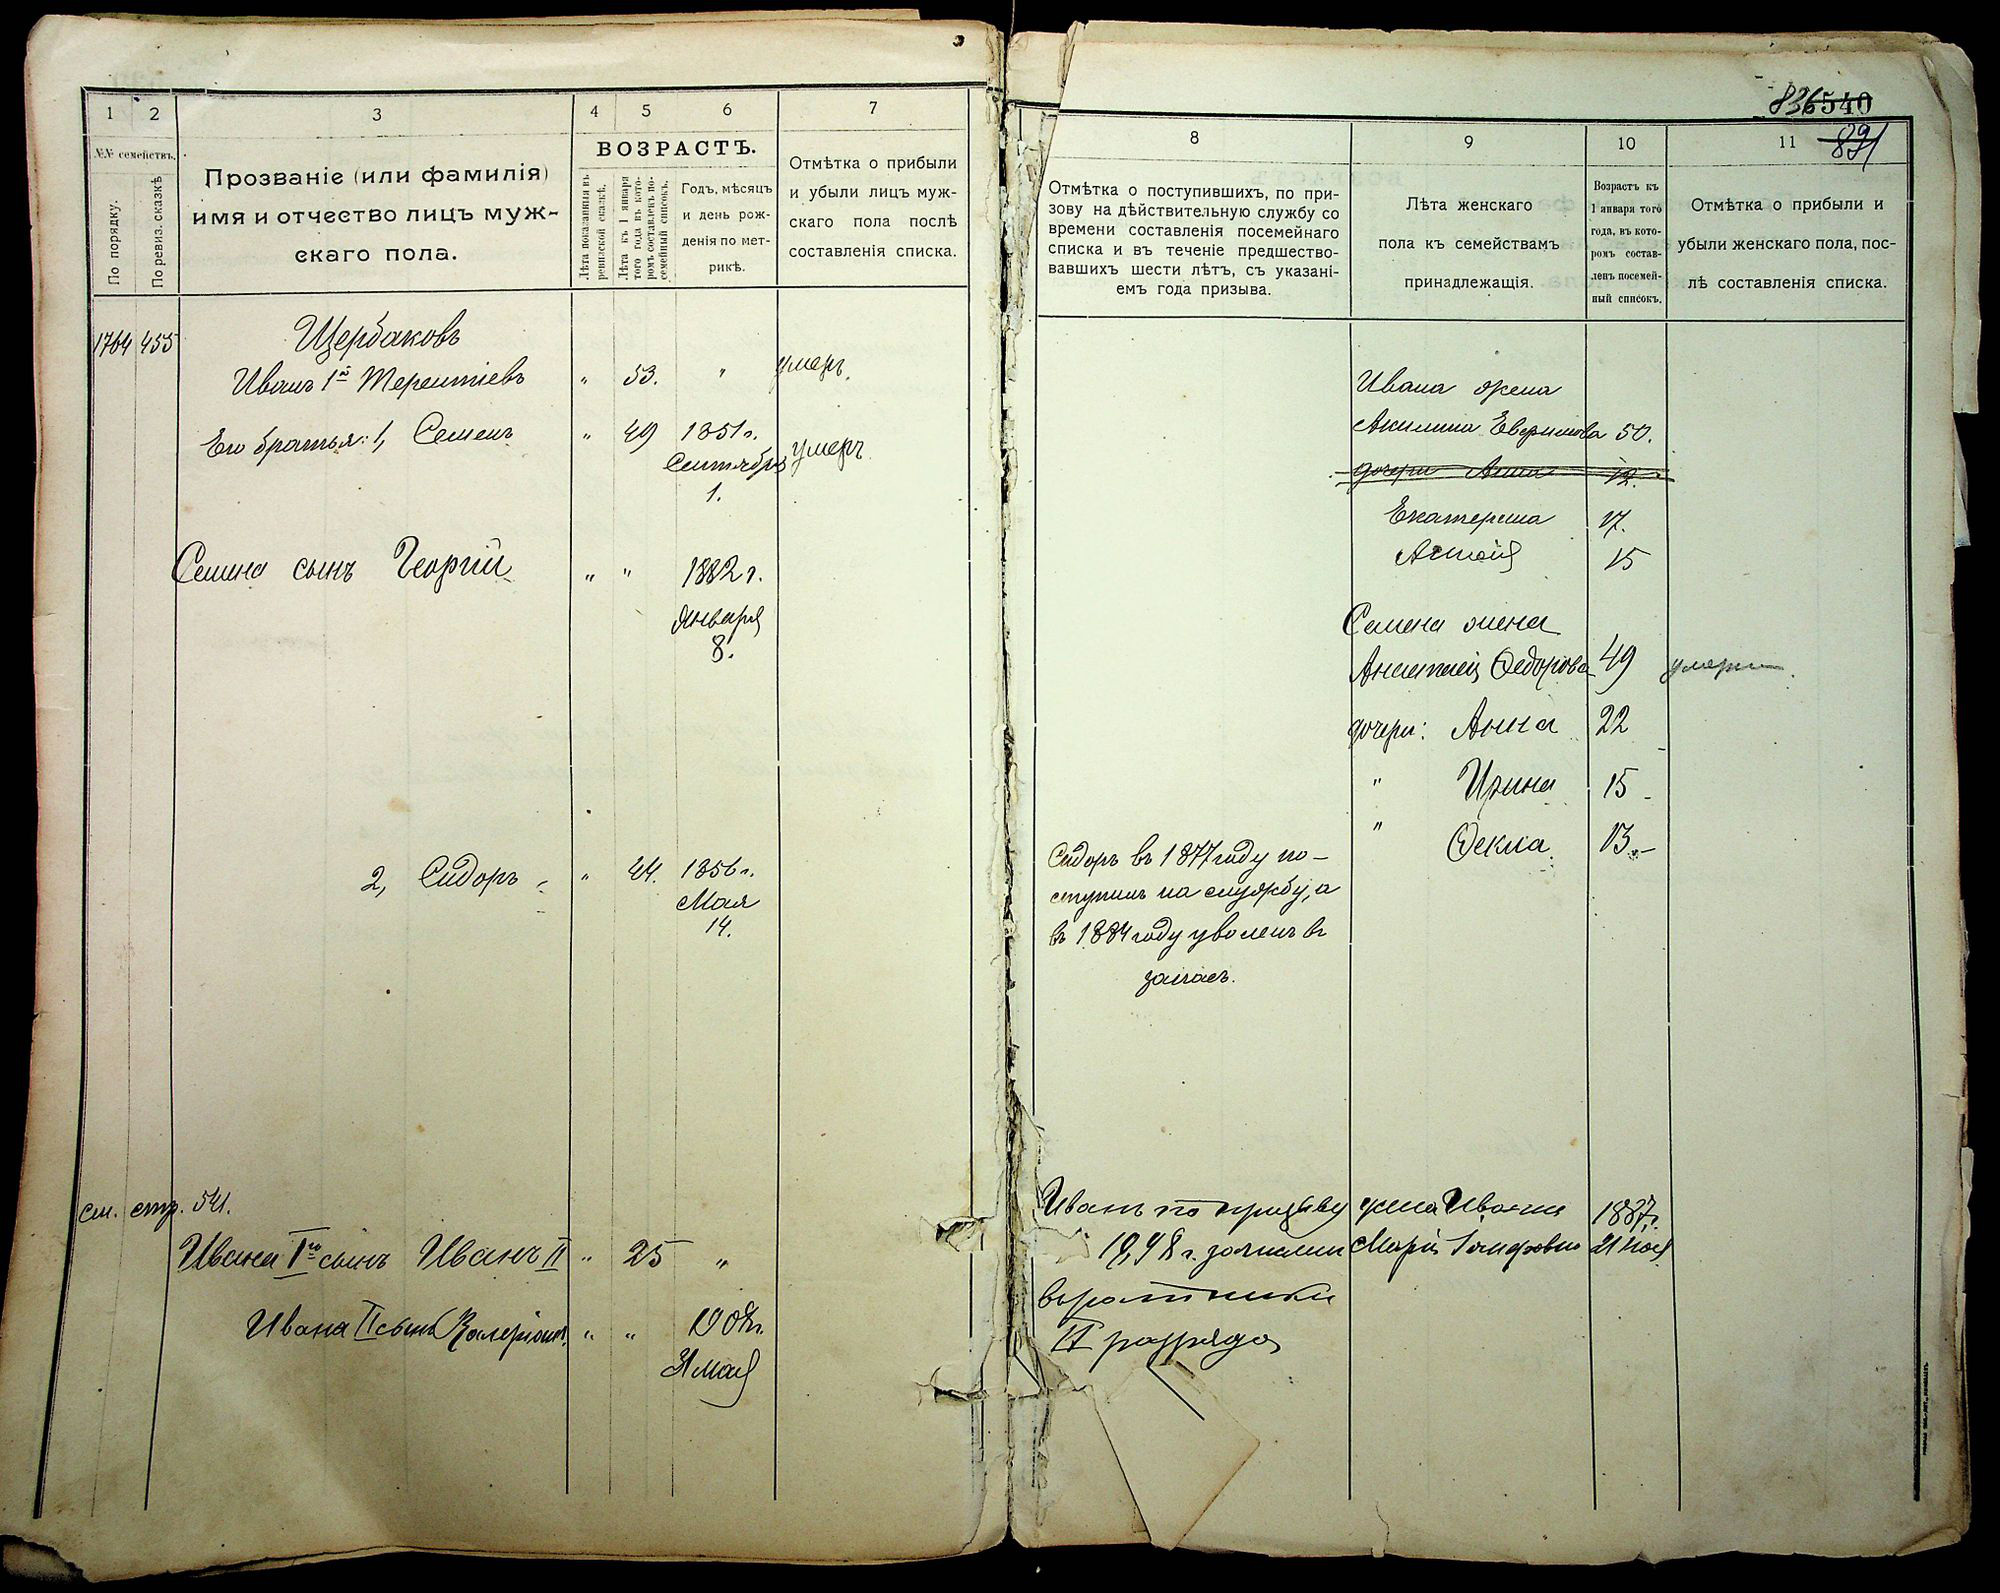 1
2
3
4
5
6
7
№№ семействъ.
По порядку.
По ревиз. сказкѣ
Прозваніе (или фамилія)
имя и отчество лицъ муж-
скаго пола.
ВОЗРАСТЪ.
Лѣта показанныя въ
ревизской сказкѣ.
Лѣта къ 1 января
того года въ кото-
ромъ составленъ по-
семейный списокъ.
Годъ, мѣсяцъ
и день рож-
денія по мет-
рикѣ.
Отмѣтка о прибыли
и убыли лицъ муж-
скаго пола послѣ
составленія списка.
1764 455
Щербаковъ
Иванъ 1й Терентіевъ " 53. " умеръ.
Его братья: 1, Семенъ " 49 1851 г.
Сентября умеръ
1.
Семена сынъ Георгій " " 1882 г.
Января
8.
2, Сидоръ " 44. 1856 г.
Мая
14.
см. стр. 541.
Ивана I го сынъ Иванъ II " 25 "
Ивана II сынъ Валеріанъ " "
31 мая
836 540
891
8
9
10
11
Отмѣтка о поступившихъ, по при-
зову на дѣйствительную службу со
времени составленія посемейнаго
списка и въ теченіе предшество-
вавшихъ шести лѣтъ, съ указані-
емъ года призыва.
Лѣта женскаго
пола къ семействамъ
принадлежащія.
Возрастъ къ
1 января того
года, въ кото-
ромъ состав-
ленъ посемей-
ный списокъ.
Отмѣтка о прибыли и
убыли женскаго пола, пос-
лѣ составленія списка.
Ивана жена
Акилина 50.
дочери Анна 12.
Екатерина 17.
15
Семена жена
Анастасія Ѳедорова 49 умерла
дочери: Анна 22
" Ирина 15
" Ѳекла 13
Сидоръ въ 1877 году по-
ступилъ на службу, а
въ 1884 году уволенъ въ
запасъ.
Иванъ по призыву жена Ивана 1887 г.
г. зачисленъ Марія 21 мая
въ ратники
II разряда